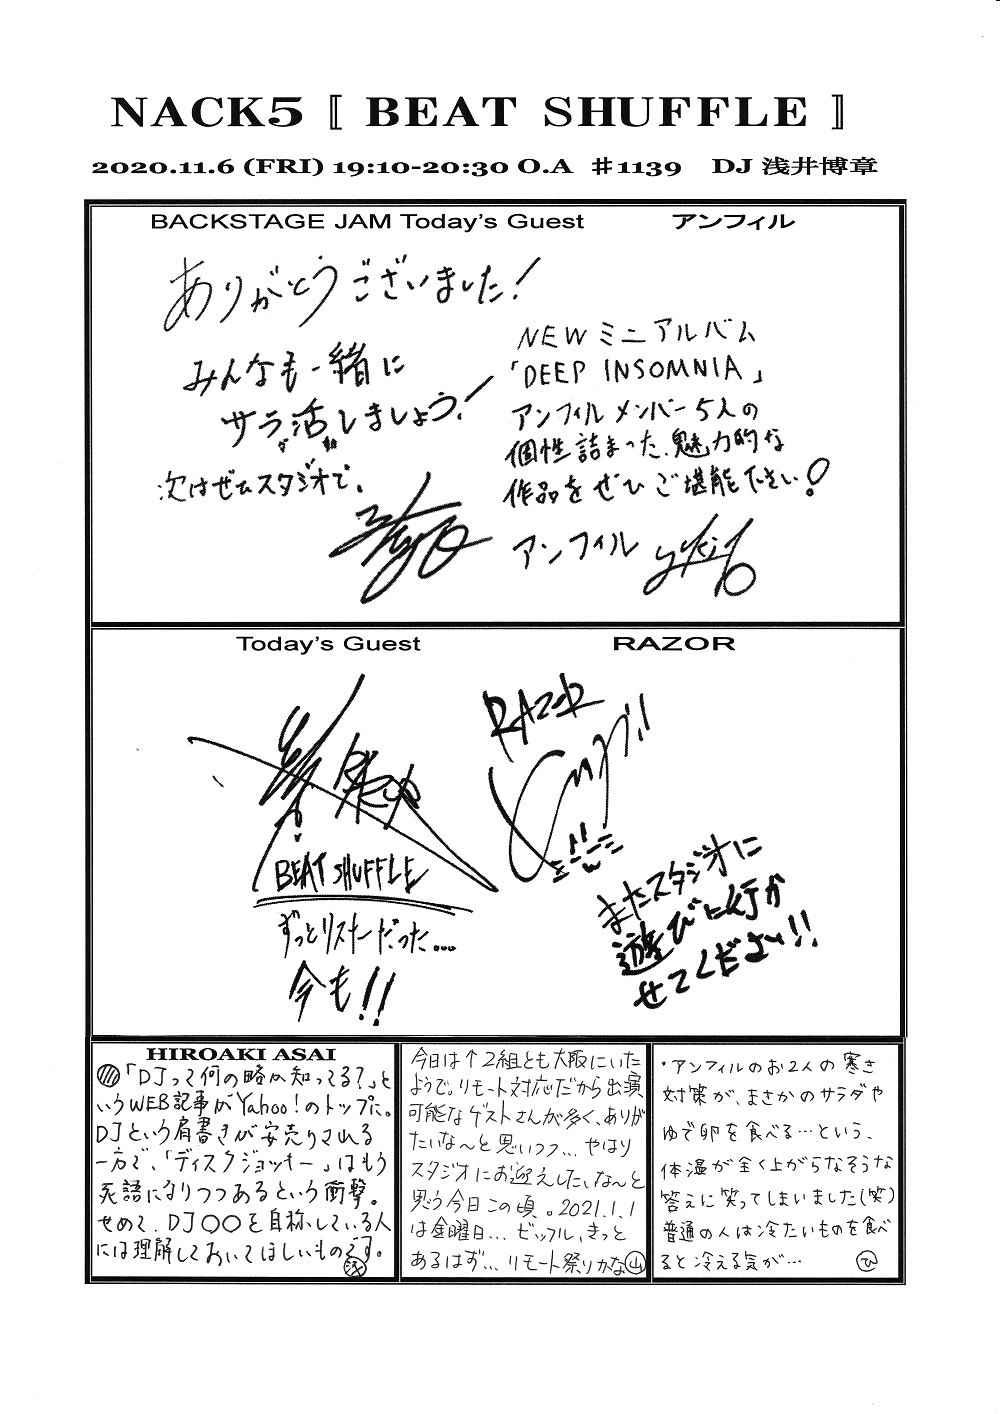 NACK5 〚 BEAT SHUFFLE 〛
2020.11.6 (FRI) 19:10-20:30 O.A ♯1139 DJ 浅井博章
BACKSTAGE JAM Today's Guest アンフィル
ありがとうございました！
みんなも一緒に
サラ活しましょう！
ダ 動
次はぜひスタジオで。
NEW ミニアルバム
「DEEP INSOMNIA」
アンフィルメンバー5人の
個性詰まった、魅力的な
作品をぜひご堪能下さい！
アンフィル yukito
Today's Guest RAZOR
BEAT SHUFFLE
ずっとリスナーだった…
今も!!
RAZOR
またスタジオに
遊びに行か
せてください!!
HIROAKI ASAI
「DJって何の略か知ってる？」と
いうWEB記事がYahoo！のトップに。
DJという肩書きが安売りされる
一方で、「ディスクジョッキー」はもう
死語になりつつあるという衝撃。
せめて、DJ〇〇を自称している人
には理解しておいてほしいものです。
浅
今日は↑2組とも大阪にいた
ようで。リモート対応だから出演
可能なゲストさんが多く、ありが
たいな〜と思いつつ…やはり
スタジオにお迎えしたいな〜と
思う今日この頃。2021.1.1
は金曜日…ビッフル、きっと
あるはず…リモート祭りかな 山
・アンフィルのお2人の寒さ
対策が、まさかのサラダや
ゆで卵を食べる…という、
体温が全く上がらなそうな
答えに笑ってしまいました(笑)
普通の人は冷たいものを食べ
ると冷える気が… ひ